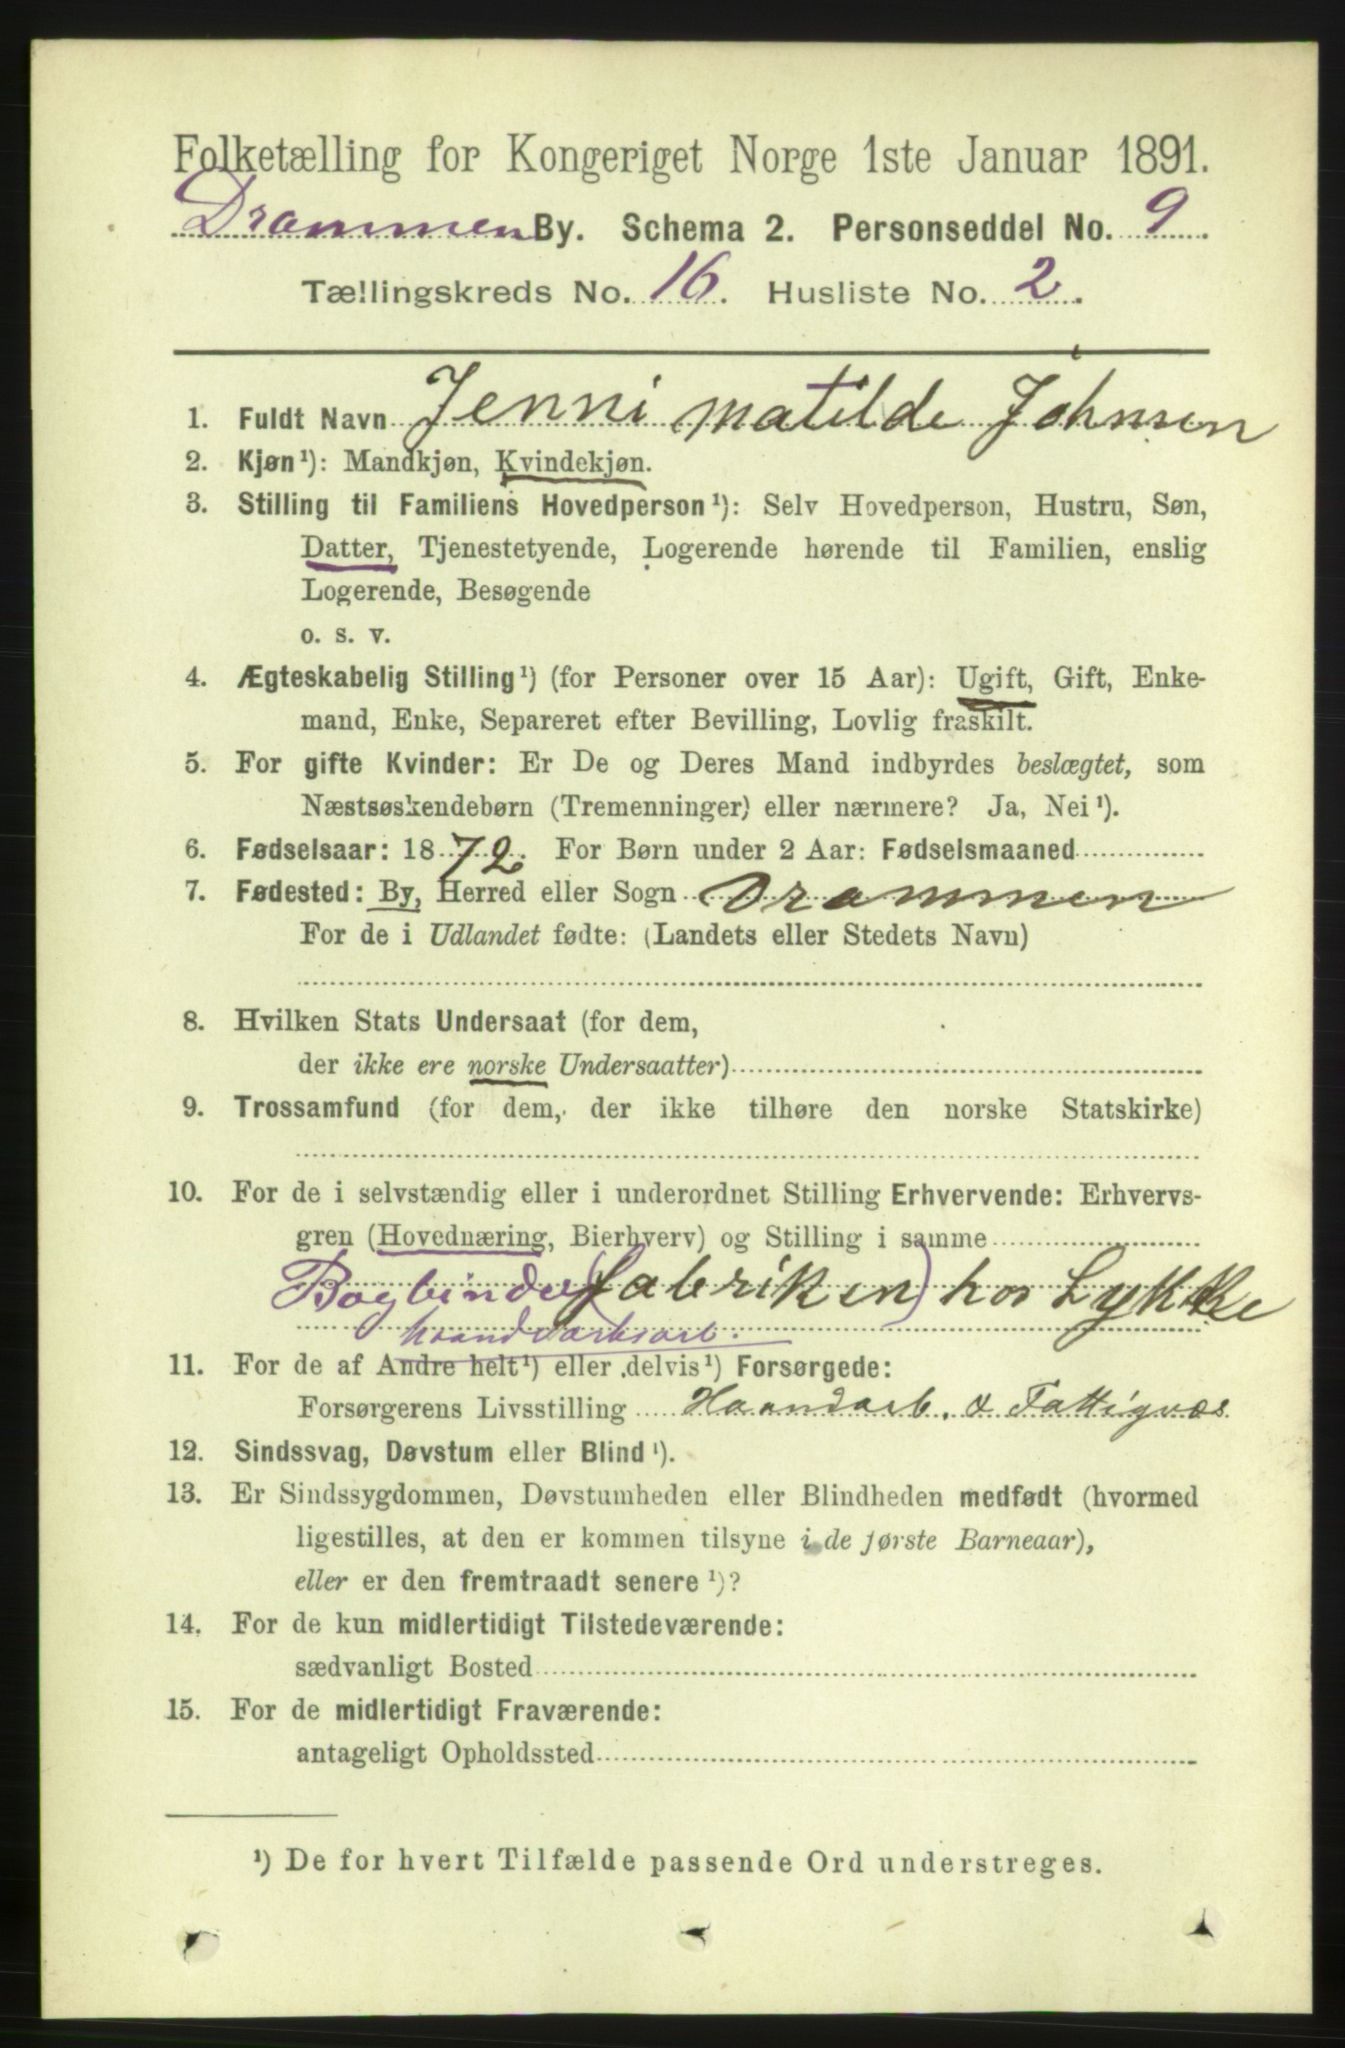 Folketælling for Kongeriget Norge 1ste Januar 1891.
Drammen By. Schema 2. Personseddel No. 9.
Tællingskreds No. 16. Husliste No. 2.
1. Fuldt Navn Jenni Matilde Johnsen
2. Kjøn¹): Mandkjøn, Kvindekjøn.
3. Stilling til Familiens Hovedperson¹): Selv Hovedperson, Hustru, Søn,
Datter, Tjenestetyende, Logerende hørende til Familien, enslig
Logerende, Besøgende
o. s. v.
4. Ægteskabelig Stilling¹) (for Personer over 15 Aar): Ugift, Gift, Enke-
mand, Enke, Separeret efter Bevilling, Lovlig fraskilt.
5. For gifte Kvinder: Er De og Deres Mand indbyrdes beslægtet, som
Næstsøskendebørn (Tremenninger) eller nærmere? Ja, Nei¹).
6. Fødselsaar: 1872. For Børn under 2 Aar: Fødselsmaaned
7. Fødested: By, Herred eller Sogn Drammen
For de i Udlandet fødte: (Landets eller Stedets Navn)
8. Hvilken Stats Undersaat (for dem,
der ikke ere norske Undersaatter)
9. Trossamfund (for dem, der ikke tilhøre den norske Statskirke)
10. For de i selvstændig eller i underordnet Stilling Erhvervende: Erhvervs-
gren (Hovednæring, Bierhverv) og Stilling i samme
Bogbinder (fabriken) hos Lykke
haandværksarb.
11. For de af Andre helt¹) eller delvis¹) Forsørgede:
Forsørgerens Livsstilling Haandarb. & Fattigvæs
12. Sindssvag, Døvstum eller Blind¹).
13. Er Sindssygdommen, Døvstumheden eller Blindheden medfødt (hvormed
ligestilles, at den er kommen tilsyne i de første Barneaar),
eller er den fremtraadt senere¹)?
14. For de kun midlertidigt Tilstedeværende:
sædvanligt Bosted
15. For de midlertidigt Fraværende:
antageligt Opholdssted
¹) De for hvert Tilfælde passende Ord understreges.